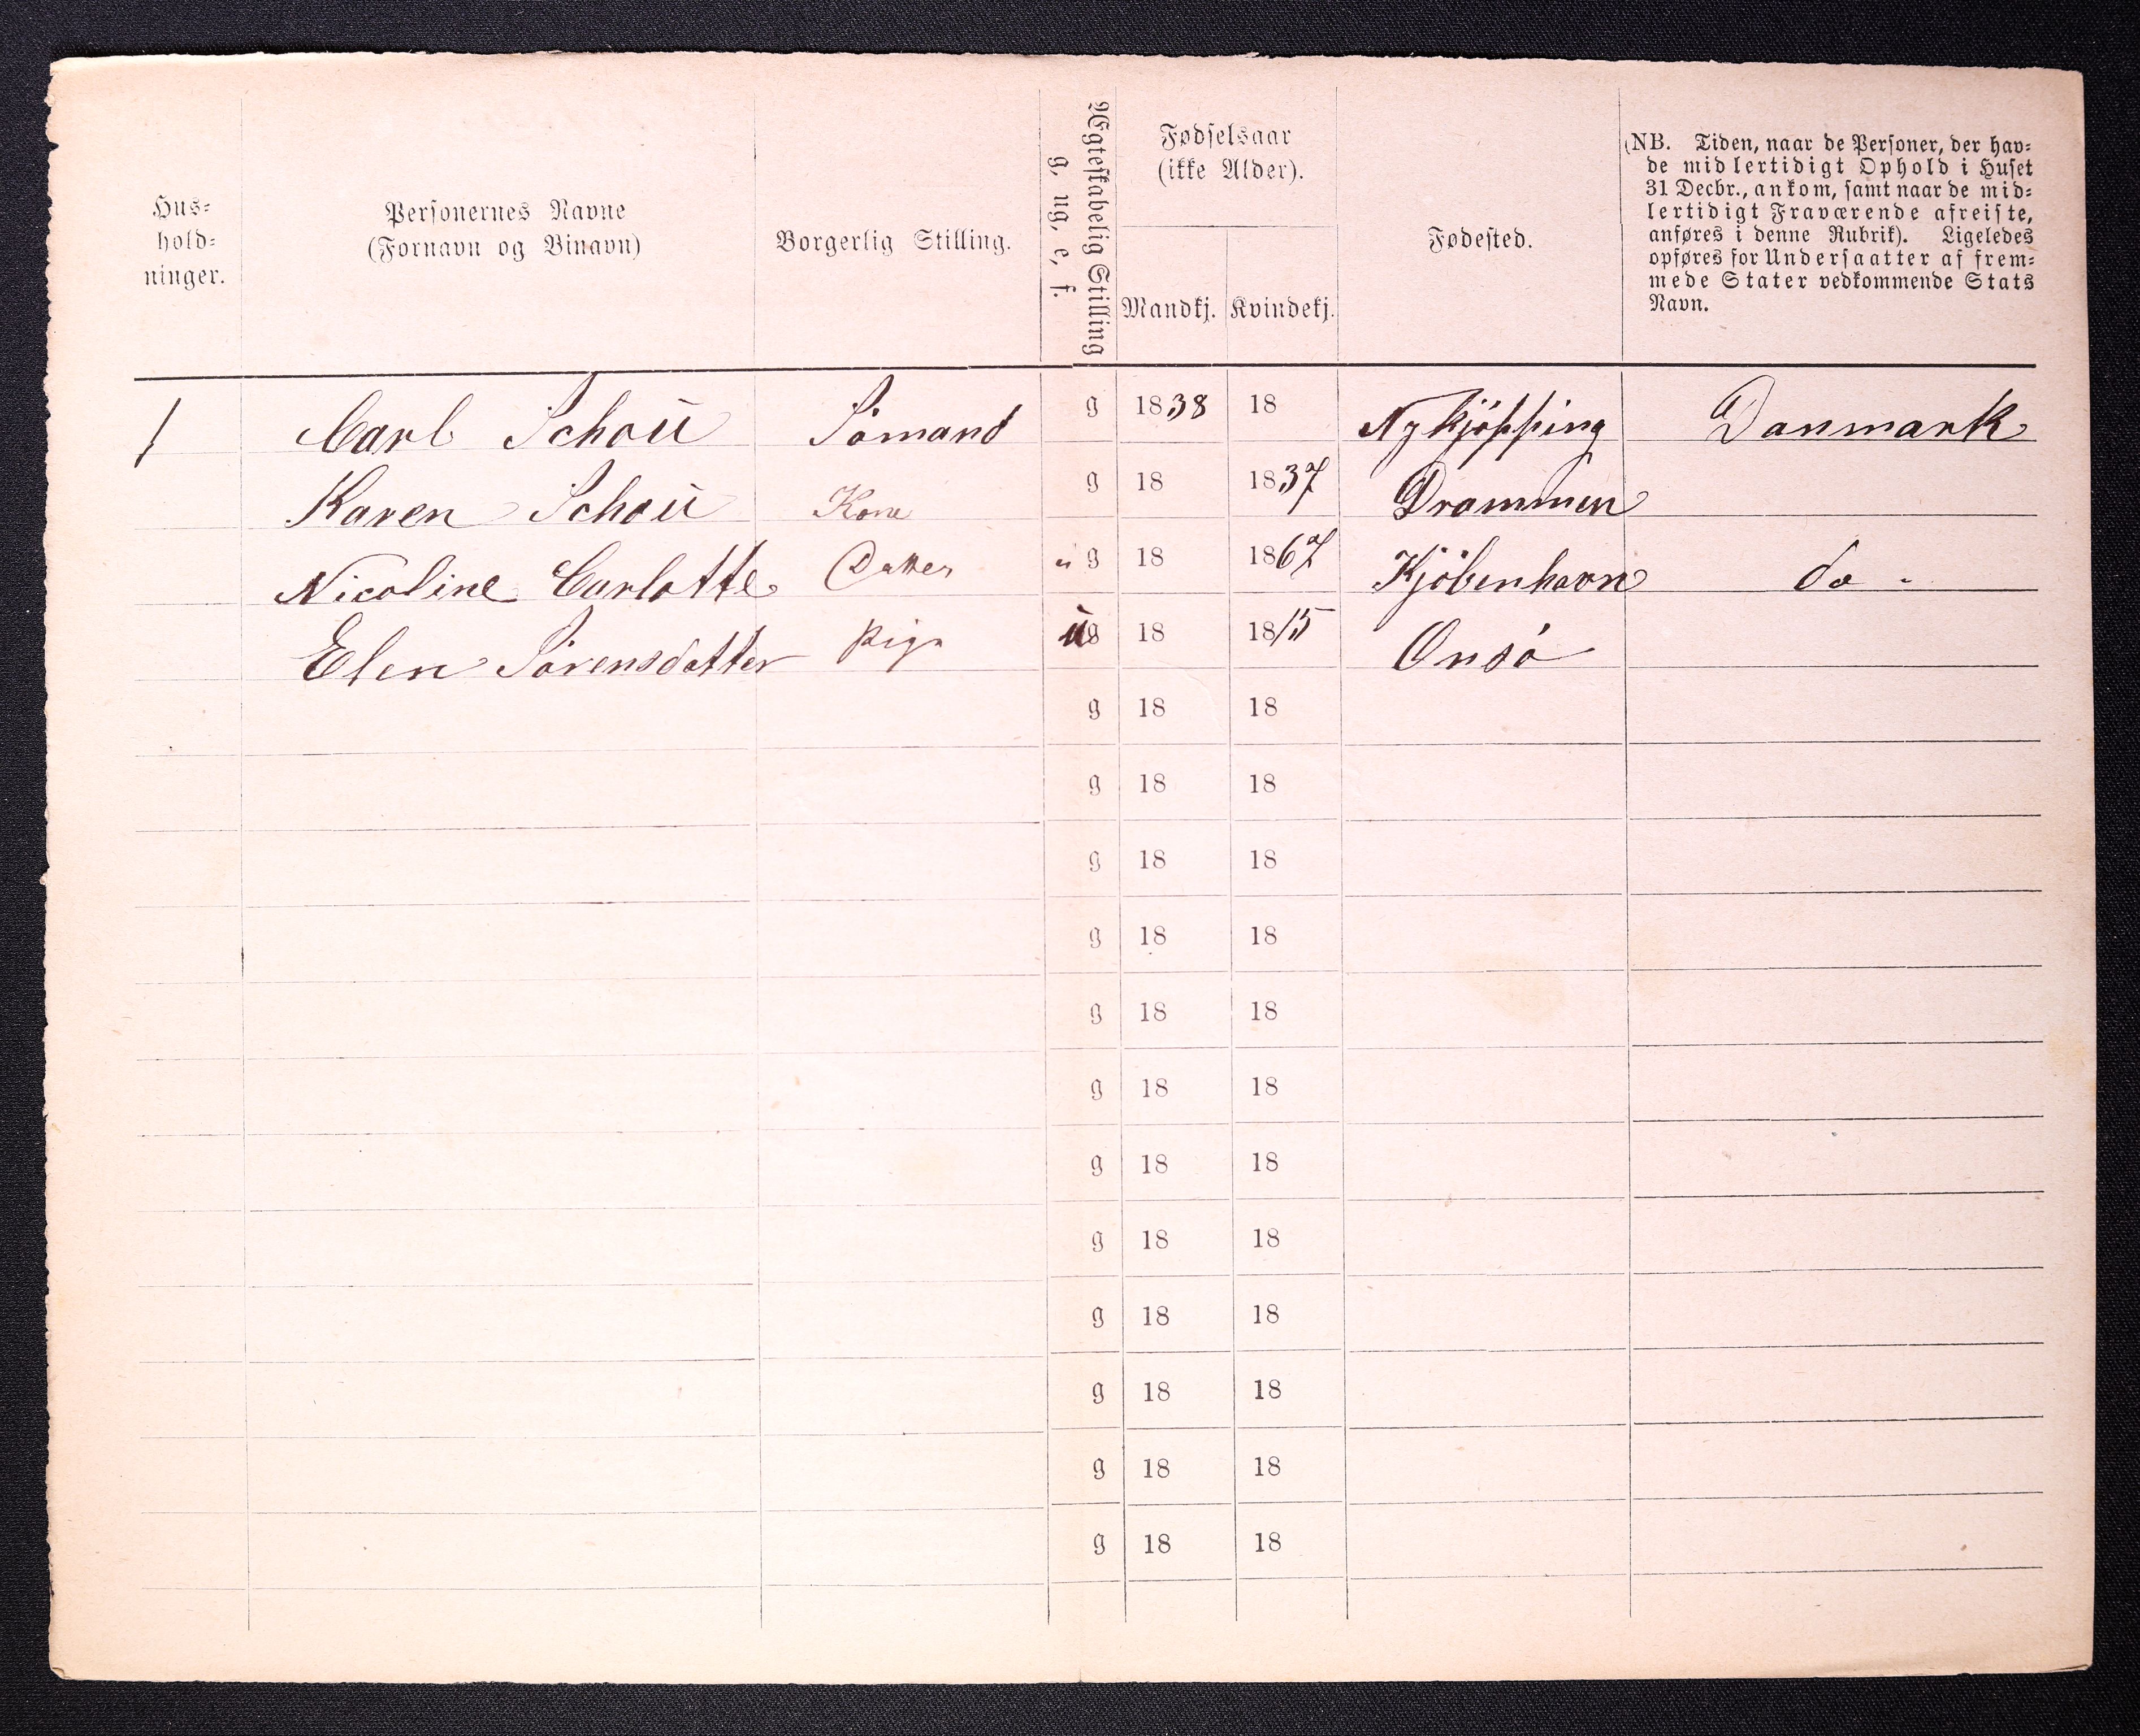 Hus-
hold-
ninger.
Personernes Navne
(Fornavn og Binavn)
Borgerlig Stilling.
Ægteskabelig Stilling
g, ug, e, f.
Fødselsaar
(ikke Alder).
Mandkj. Kvindekj.
Fødested.
(NB. Tiden, naar de Personer, der hav-
de midlertidigt Ophold i Huset
31 Decbr., ankom, samt naar de mid-
lertidigt Fraværende afreiste,
anføres i denne Rubrik). Ligeledes
opføres for Undersaatter af frem-
mede Stater vedkommende Stats
Navn.
1 Carl Schoŭ Sömand g 1838 18 Nykjöpping Danmark
Karen Schoŭ Kone g 18 1837 Drammen
Nicoline Carlotte Datter u g 18 1867 Kjöbenhavn do -
Elen Sörensdatter Pige ug 18 1815 Onsö
g 18 18
g 18 18
g 18 18
g 18 18
g 18 18
g 18 18
g 18 18
g 18 18
g 18 18
g 18 18
g 18 18
g 18 18